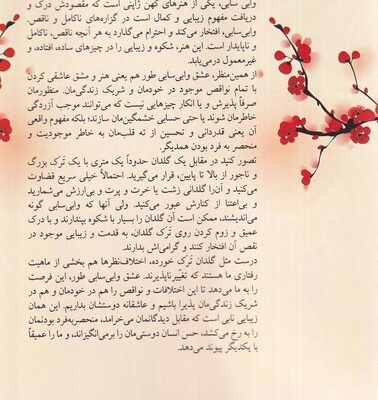 وابی سابی، یکی از هنرهای کهن ژاپنی است که مقصودش درک و
دریافت مفهوم زیبایی و کمال است در گزاره‌های ناکامل و ناقص.
وابی‌سابی، افتخار می‌کند و احترام می‌گذارد به هر آنچه ناقص، ناکامل
و ناپایدار است. این هنر، شکوه و زیبایی را در چیزهای ساده، افتاده، و
غیرمعمول درمی‌یابد.
از همین‌منظر، عشق وابی‌سابی طور هم یعنی هنر و مشق عاشقی کردن
با تمام نواقص موجود در خودمان و شریک زندگی‌مان. منظورمان
صرفاً پذیرش و یا انکار چیزهایی نیست که می‌توانند موجب آزردگی
خاطرمان شوند یا حتی حسابی خشمگین‌مان سازند؛ بلکه مفهوم واقعی
آن یعنی قدردانی و تحسین از ته قلب‌مان به خاطر موجودیت و
منحصر به فرد بودن همدیگر.
تصور کنید در مقابل یک گلدان حدوداً یک متری با یک تَرَک بزرگ
و ناجور از بالا تا پایین، قرار می‌گیرید. احتمالاً خیلی سریع قضاوت
می‌کنید و آن‌را گلدانی زشت یا خرت و پرت و بی‌ارزش می‌شمارید
و بی‌اعتنا از کنارش عبور می‌کنید. ولی آنها که وابی‌سابی گونه
می‌اندیشند، ممکن است آن گلدان را بسیار با شکوه بپندارند و با درک
عمیق و زوم کردن روی تَرَک گلدان، به قدمت و زیبایی موجود در
نقص آن افتخار کنند و گرامی‌اش بدارند.
درست مثل گلدان تَرَک خورده، اختلاف‌نظرها هم بخشی از ماهیت
رفتاری ما هستند که تغییرناپذیرند. عشق وابی‌سابی طور، این فرصت
را به ما می‌دهد تا این اختلافات و نواقص را هم در خودمان و هم در
شریک زندگی‌مان پذیرا باشیم و عاشقانه دوستشان بداریم. این همان
زیبایی نابی است که مقابل دیدگانمان می‌خرامد، منحصربه‌فرد بودنمان
را به رخ می‌کشد، حس انسان دوستی‌مان را برمی‌انگیزاند، و ما را عمیقاً
با یکدیگر پیوند می‌دهد.